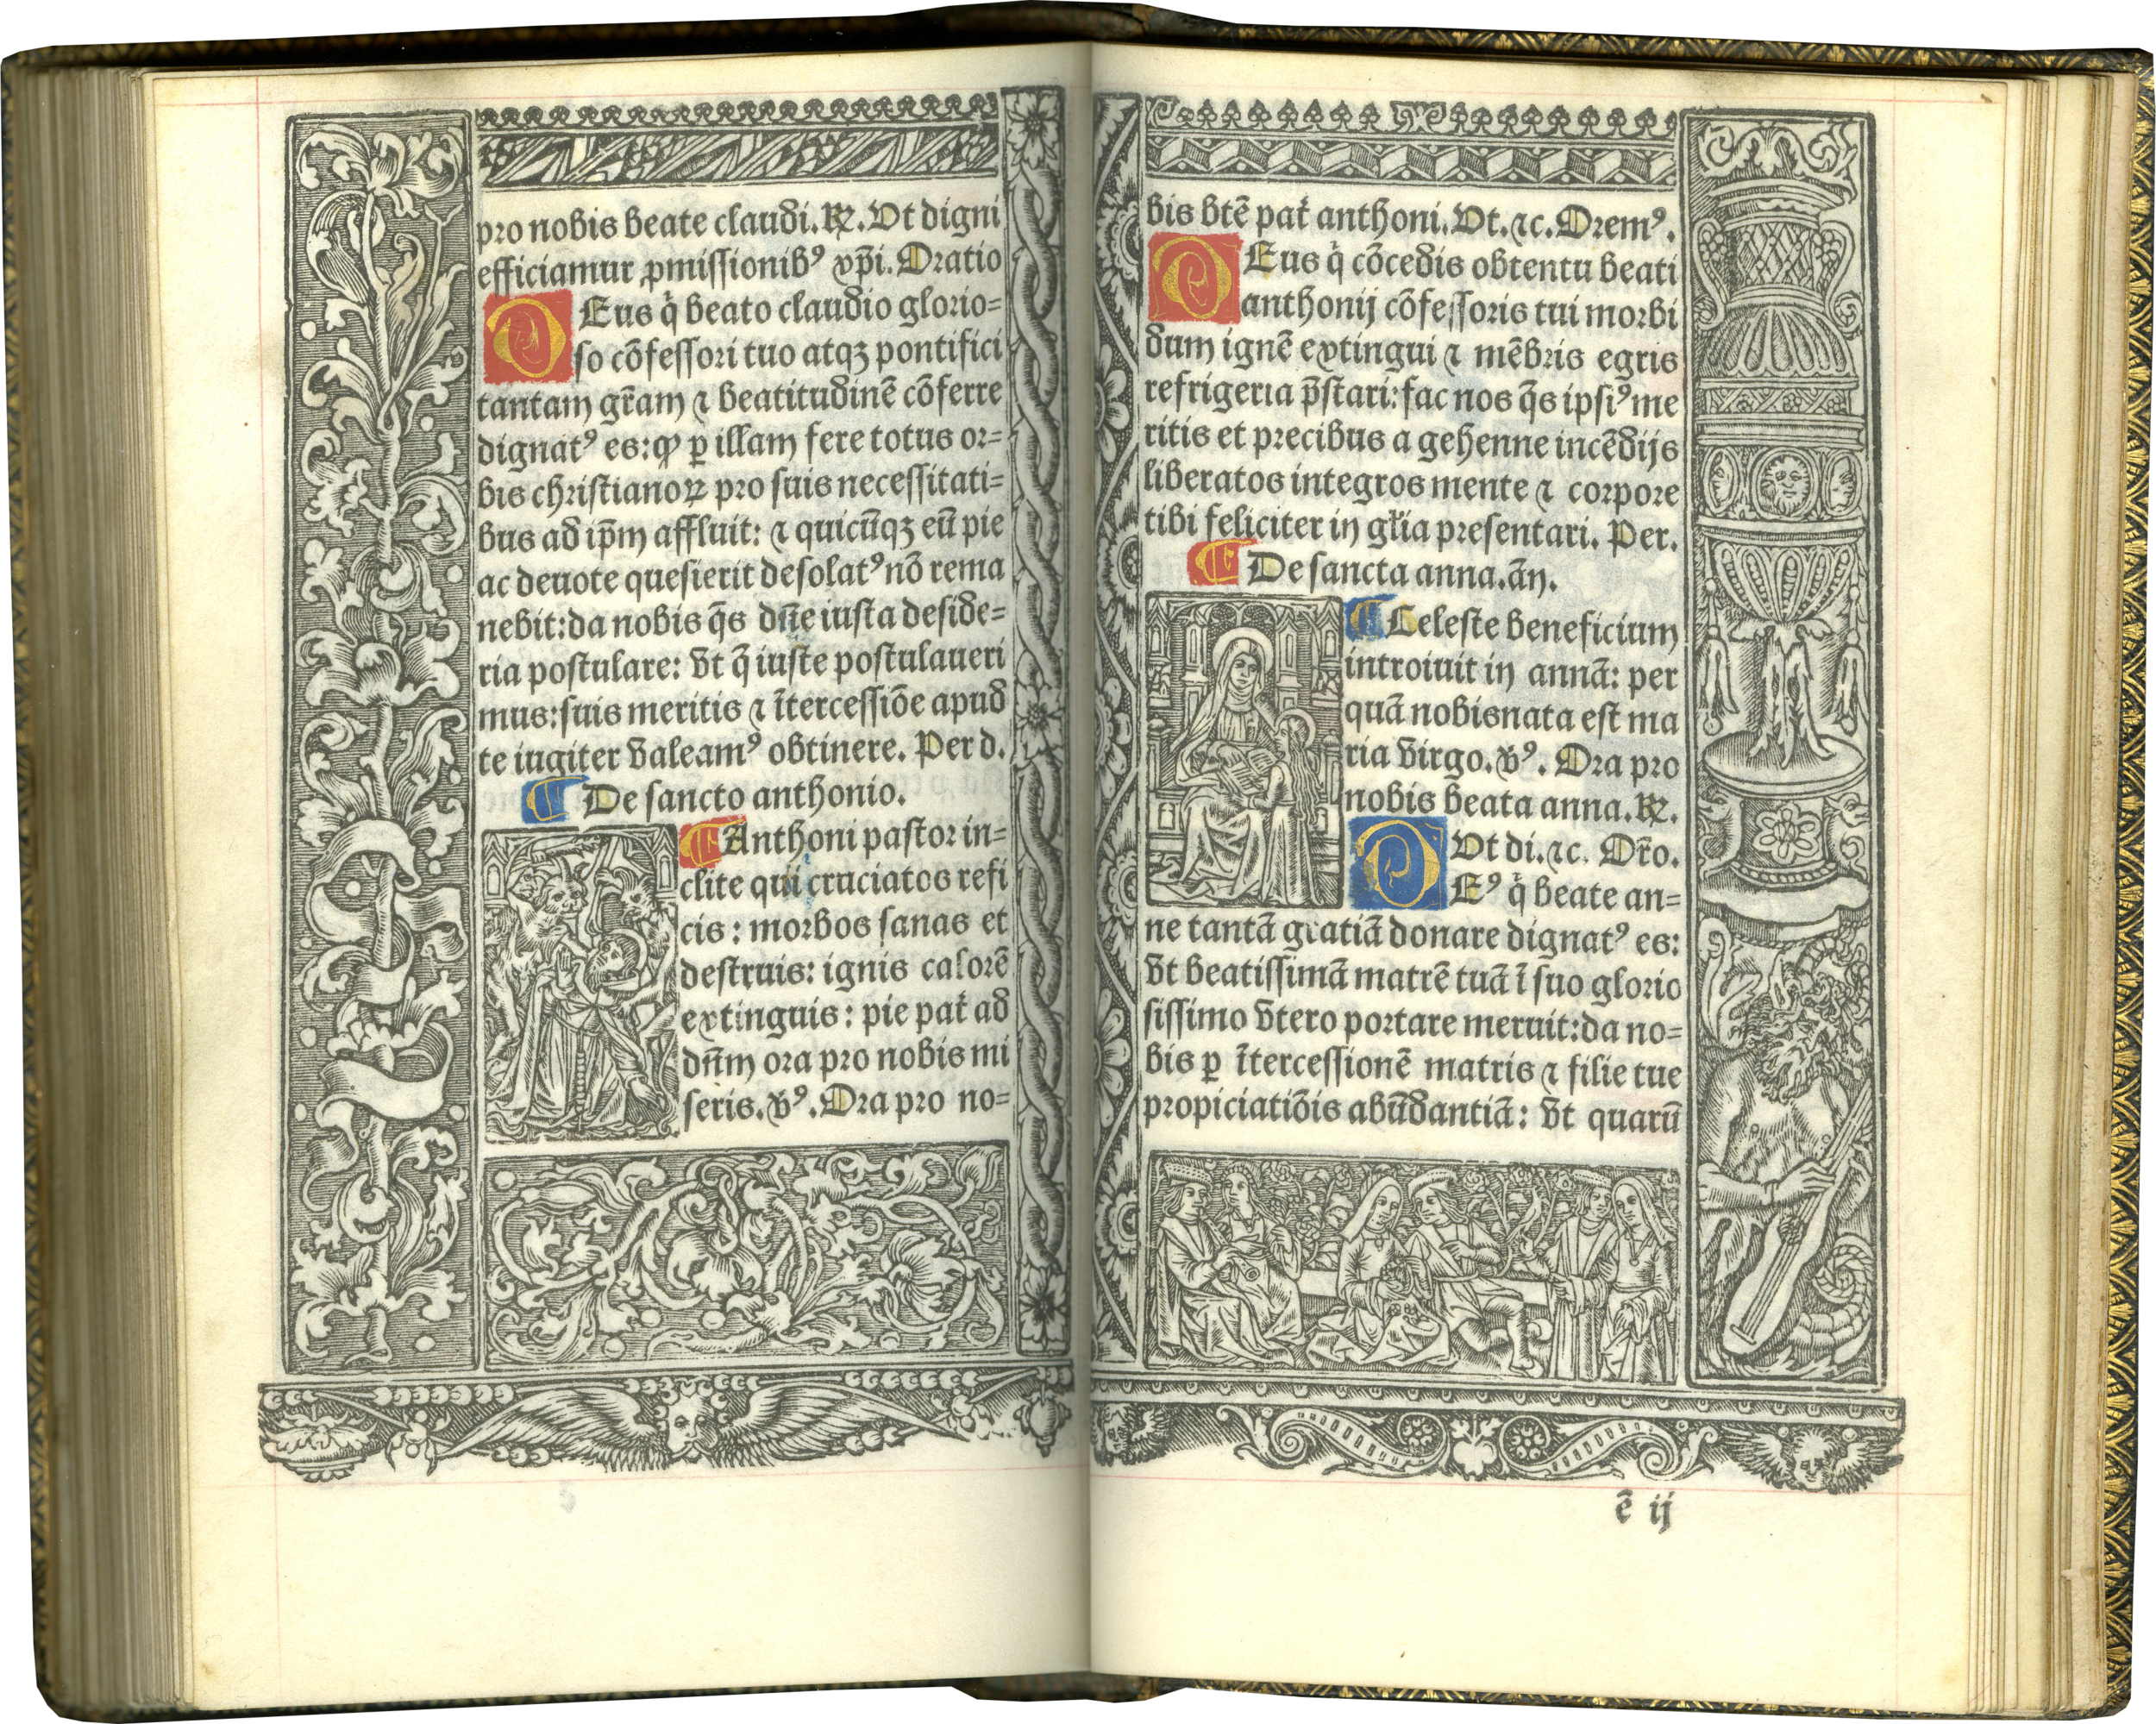 pro nobis beate claudi. ℟. Ut digni
efficiamur ꝓmissionibꝰ xp̄i. Oratio
DEus q̇ beato claudio glorio=
so cōfessori tuo atqꝫ pontifici
tantam gr̄am ⁊ beatitudinē cōferre
dignatꝰ es: ꝙ ꝑ illam fere totus or=
bis christianoꝝ pro suis necessitati=
bus ad ip̄m affluit: ⁊ quicūqꝫ eū pie
ac deuote quesierit desolatꝰ nō rema
nebit: da nobis q̄s dn̄e iusta deside=
ria postulare: vt q̄ iuste postulaueri
mus: suis meritis ⁊ ītercessiōe apud
te iugiter valeamꝰ obtinere. Per d.
¶ De sancto anthonio.
¶ Anthoni pastor in=
clite qui cruciatos refi
cis: morbos sanas et
destruis: ignis calorē
extinguis: pie pat̄ ad
dn̄m ora pro nobis mi
seris. vꝰ. Ora pro no=
bis btē pat̄ anthoni. Ut. ⁊c. Oremꝰ.
DEus q̇ cōcedis obtentu beati
anthonij cōfessoris tui morbi
dum ignē extingui ⁊ mēbris egris
refrigeria p̄stari: fac nos q̄s ipsiꝰ me
ritis et precibus a gehenne incēdijs
liberatos integros mente ⁊ corpore
tibi feliciter in gl̄ia presentari. Per.
¶ De sancta anna. ān.
¶ Celeste beneficium
introiuit in annā: per
quā nobis nata est ma
ria virgo. vꝰ. Ora pro
nobis beata anna. ℟.
Ut di. ⁊c. Or̄o.
DEꝰ q̇ beate an=
ne tantā gratiā donare dignatꝰ es:
vt beatissimā matrē tuā ī suo glorio
sissimo vtero portare meruit: da no=
bis ꝑ ītercessionē matris ⁊ filie tue
propiciatiōis abūdantiā: vt quarū
ē ij